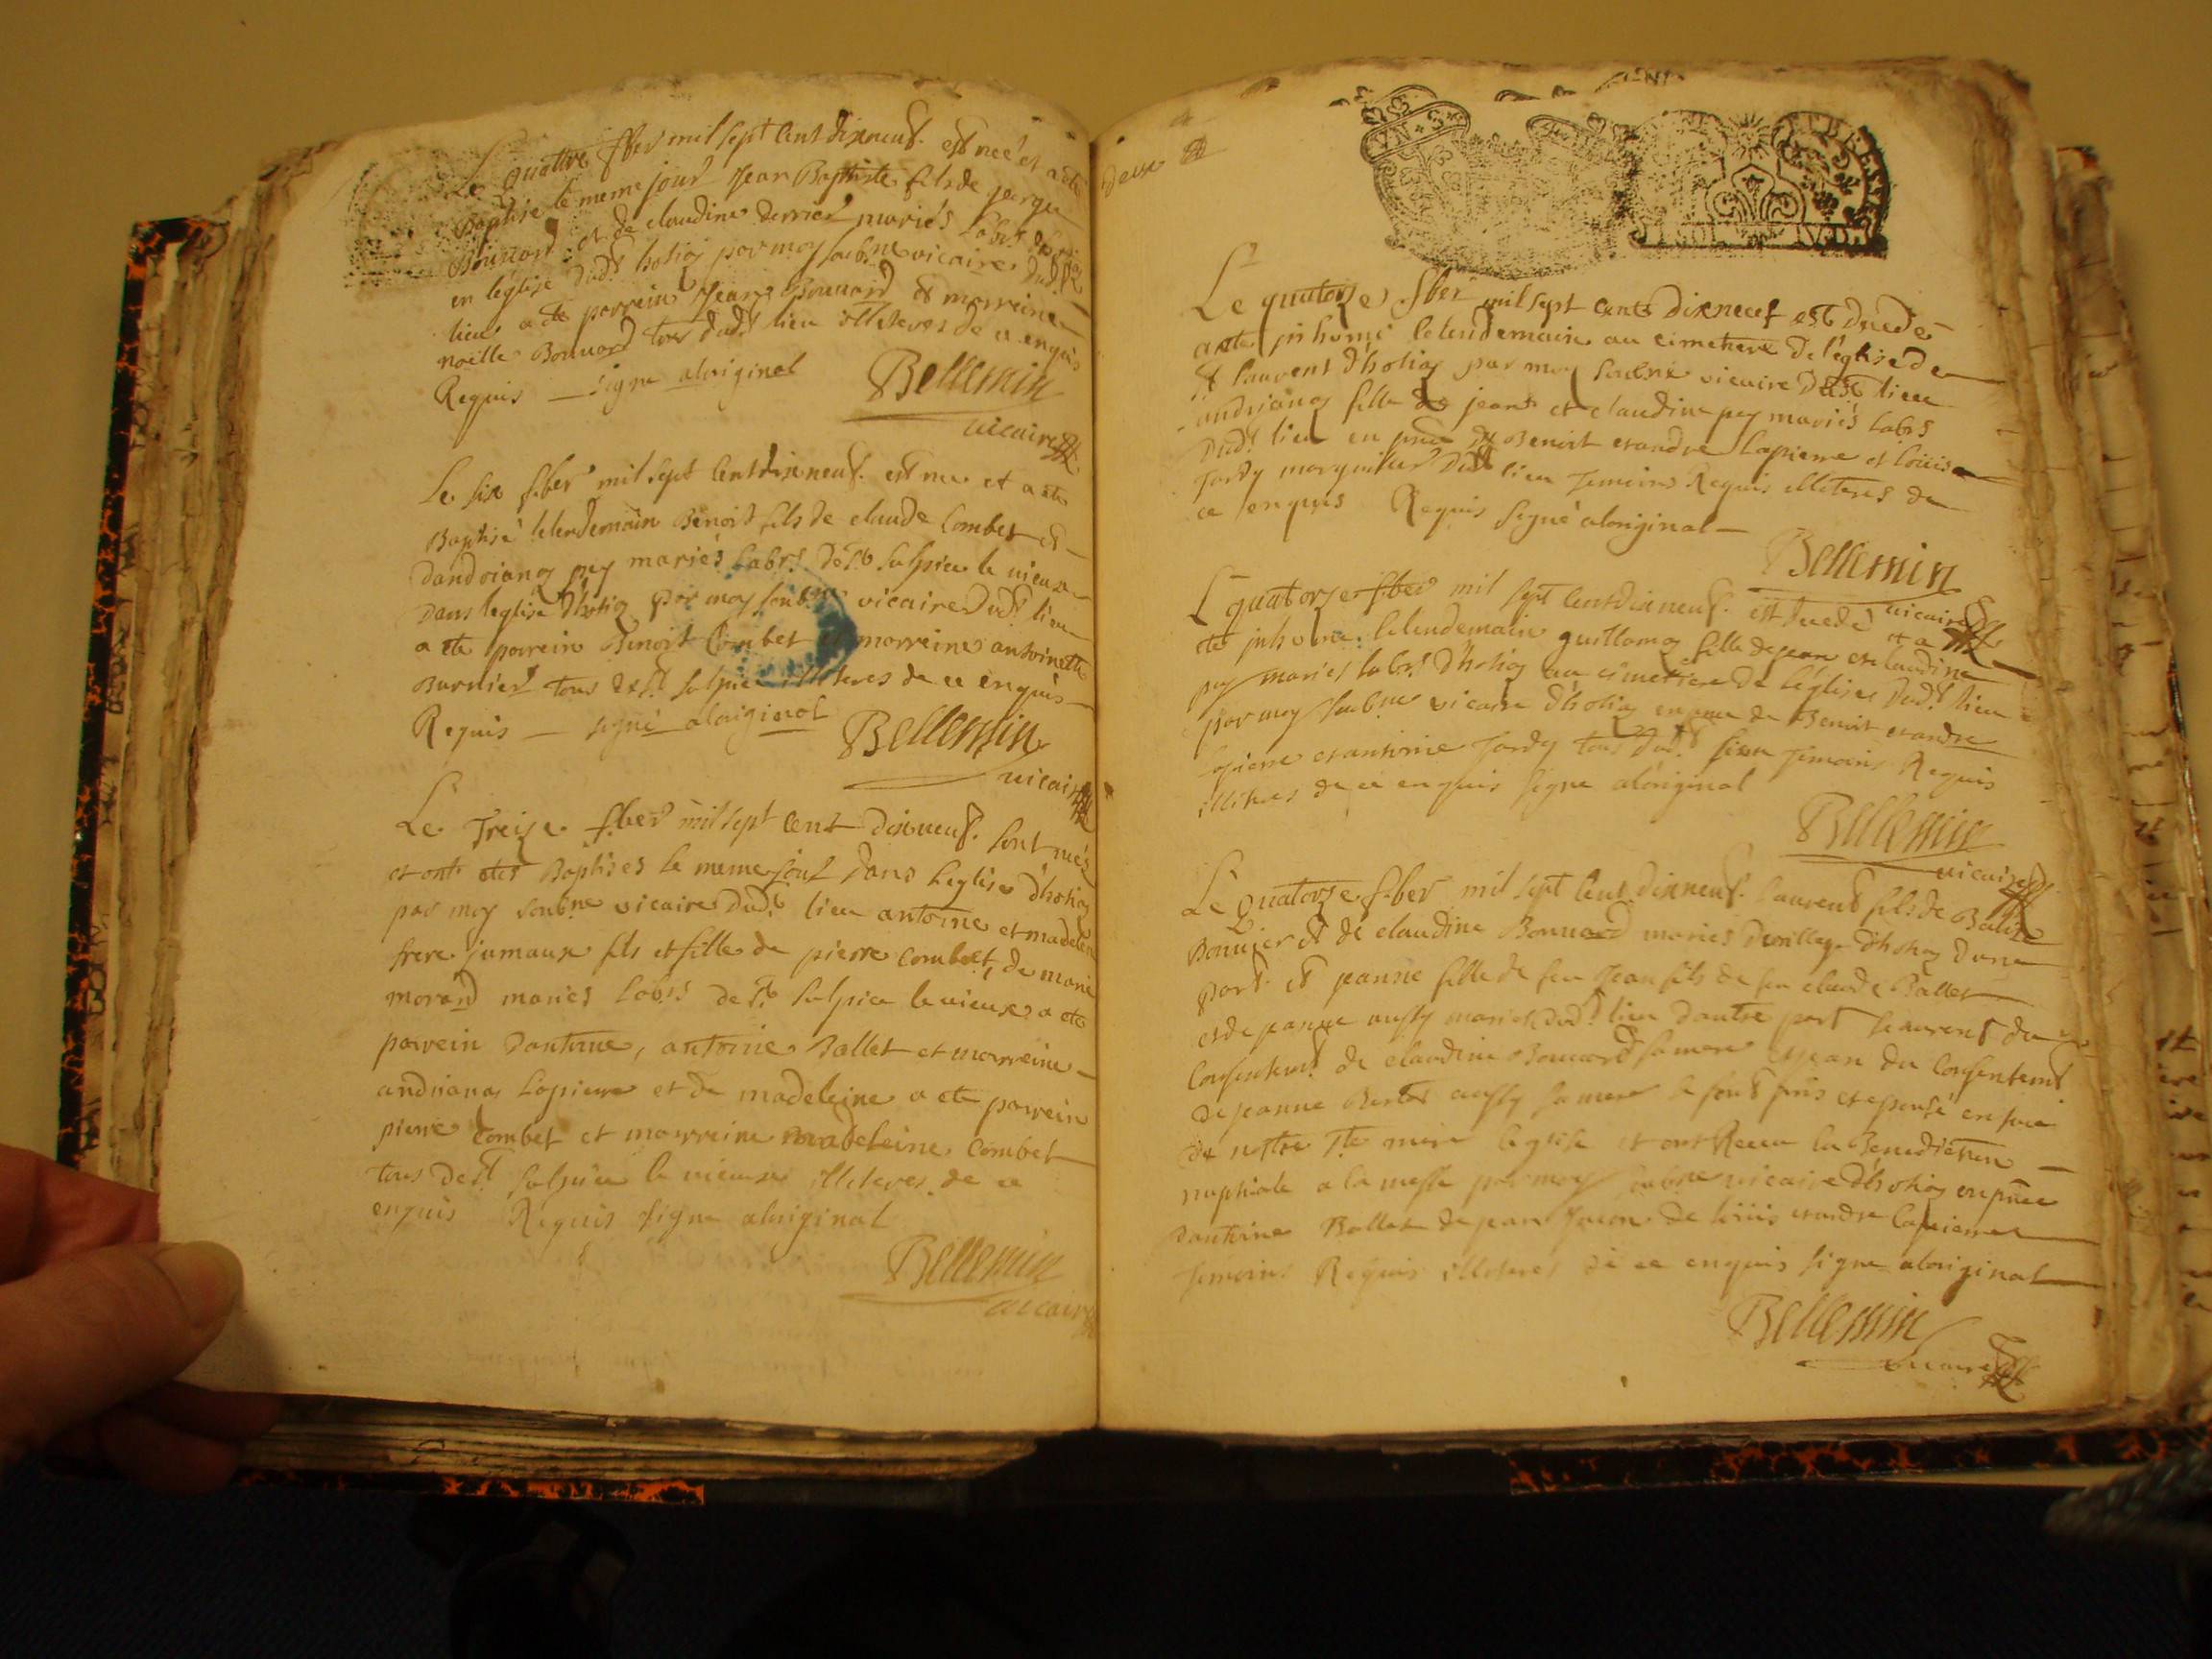 Le quattre fber mil sept cent dixneuf. est neé et a eté
Baptisé le meme jour Jean Baptiste fils de
et de claudine mariés
en leglise dud.t hotiaz par moy soub.ne vicaire dud.t
lieu a eté parrein Jean Bonnard & marreine
noelle Bonnard tous dud.t lieu illiteres de ce enquis
Requis — signe aloriginal
Bellemin
vicaire
Le six fber mil sept cent dixneuf. est né et a eté
Baptisé lelendemain Benoit fils de claude Combet et
dandriane pey mariés labrs. de St. Sulpice le vieux
dans leglise dhotiaz par moy soub.ne vicaire dud.t lieu
a eté parrein Benoit Combet marreine antoinette
Burnier tous de St. Sulpice illiteres de ce enquis
Requis — signé aloriginal
Bellemin
vicaire
Le Treize fber mil sept cent dixneuf. sont neés
et ont etés Baptises le meme jour dans leglise dhotiaz
par moy soub.ne vicaire dud.t lieu antoine et madeleine
frere jumaux fils et fille de pierre combet, de marie
morand mariés labrs de St. Sulpice le vieux a eté
parrein dantoine, antoine Ballet et marreine
andriana Lapierre et de madeleine a eté parrein
pierre Combet et marreine madeleine Combet
tous de St. Sulpice le vieux illiteres de ce
enquis Requis signe aloriginal
Bellemin
vicaire
Le quatorze fber mil sept cent dixneuf est decedé
a eté inhumé lelendemain au cimetiere de leglise de
St laurent dhotiaz par moy soubne vicaire dud.t lieu
andriana fille de jean et claudine pey mariés labrs
dud.t lieu en pnce de Benoit et andre Lapierre et louis
Tardy marguiller dud.t lieu Temoins Requis illiteres de
ce enquis Requis signé aloriginal —
Bellemin
vicaire
Le quatorze fber mil sept cent dixneuf. est decedé et a
eté inhumé lelendemain guillama fille de jean et claudine
pey mariés labrs. dhotiaz au cimetiere de léglise dud.t lieu
par moy soub.ne vicaire dhotiaz en pnce de Benoit et andre
Lapierre et antoine Tardy tous dud.t lieu Temoins Requis
illiteres de ce enquis signe aloriginal
Bellemin
vicaire
Le quatorze fber mil sept cent dixneuf. laurent fils de
Bonnier & de claudine Bonnard mariés du village dhotiaz dune
part & jeanne fille de feu Jean fils de feu claude Ballet
et de jeanne aussy mariés dud.t lieu dautre part laurent du
Consentemt. de claudine Bonnard sa mere et jean du Consentemt
de jeanne aussy sa mere se sont pris et epousé en face
de notre Ste. mere leglise et ont Receu la Benediction
nuptiale a la messe par moy soubne vicaire dhotiaz en pnce
dantoine Ballet de jean de louis et andre Lapierre
Temoins Requis illiteres de ce enquis signe aloriginal
Bellemin
vicaire